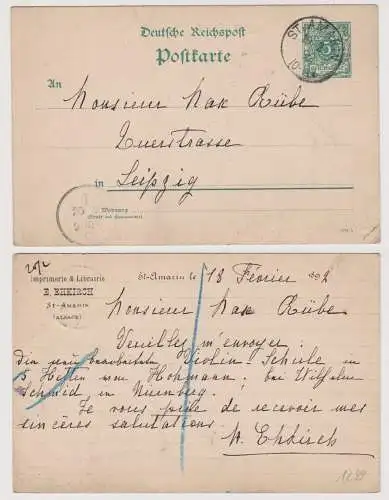 Deutsche Reichspost
Postkarte
ST. AMARIN
5
An
Monsieur Max Rübe
Querstrasse
in Leipzig
Wohnung
(Straße und Hausnummer)
20/2
Imprimerie & Librairie
E. EHKIRCH
St-AMARIN
(ALSACE)
St-Amarin le 18 Février 92
Monsieur Max Rübe
Veuillez m'envoyer.
Die neu bearbeitete Violin-Schule in
5 Heften von Hohmann, bei Wilhelm
Schmid in Nürnberg.
Je vous prie de recevoir mes
sincères salutations
Ehkirch